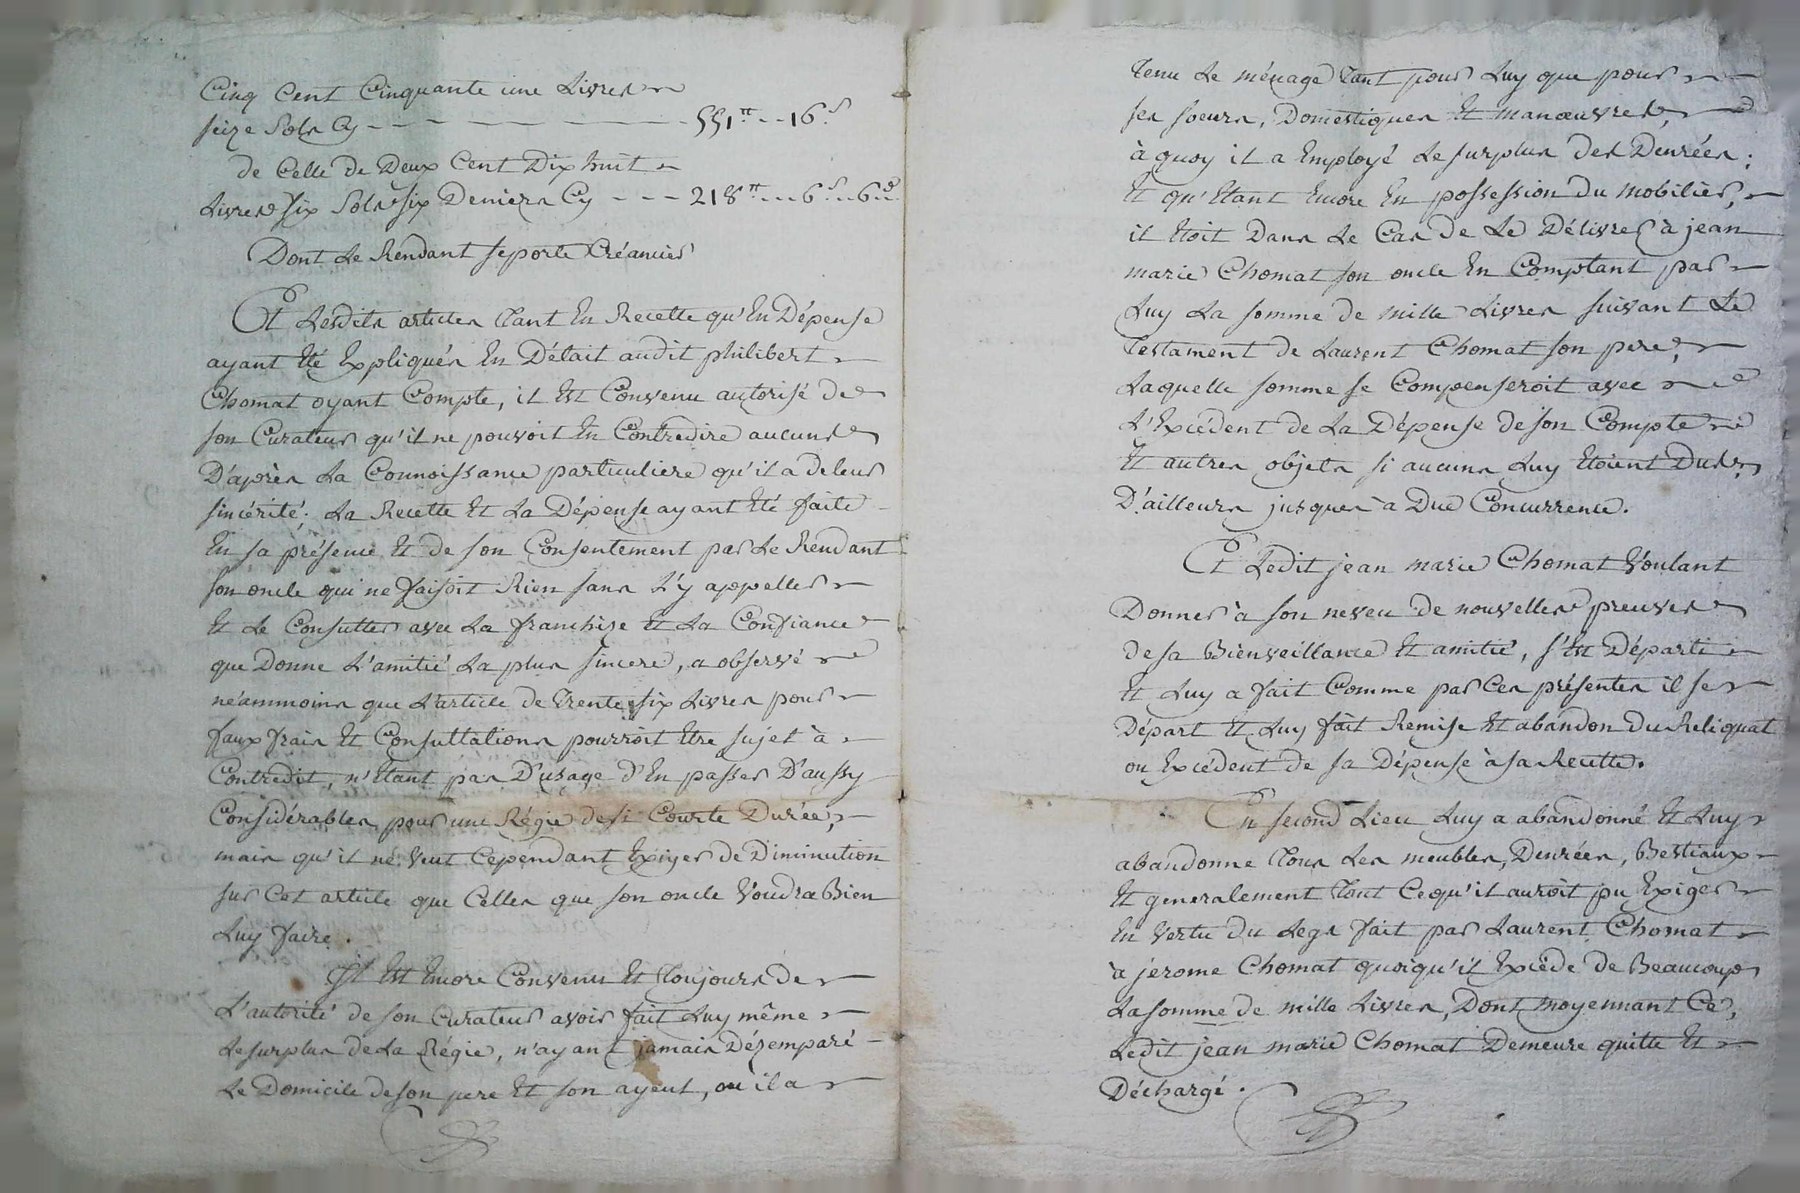 Cinq Cent Cinquante une Livres
seize Sols Cy - - - - - - 551tt - - 16s
de Celle de Deux Cent Dix huit
Livres Six Sols six Deniers Cy - - - 218tt - - 6s - - 6d
Dont Le Rendant se porte Créancier
Et Lesdits articles Tant En Recette qu'En Dépense
ayant Eté Expliqués En Détail audit philibert
Chomat oyant Compte, il Est Convenu autorisé de
son Curateur qu'il ne pouvoit En Contredire aucuns
D'après La Connoissance particuliere qu'il a de leur
sincérité; La Recette Et La Dépense ayant Eté faite
En sa présence Et de son Consentement par Le Rendant
son oncle qui ne faisoit Rien sans L'y appeller
Et Le Consulter avec La franchise Et La Confiance
que Donne L'amitié La plus sincere, a observé
néammoins que L'article de Trente six Livres pour
faux frais Et Consultations pourroit Etre sujet à
Contredit, n'Etant pas D'usage d'En passer D'aussy
Considérables pour une Régie de si Courte Durée,
mais qu'il ne Veut Cependant Exiger de Diminution
sur Cet article que Celles que son oncle Voudra Bien
Luy faire.
Il Est Encore Convenu Et Toujours de
L'autorité de son Curateur avoir fait Luy même
Le surplus de La Régie, n'ayant jamais Désemparé
Le Domicile de son pere Et son ayeul, ou il a
Tenu Le ménage Tant pour Luy que pour
ses soeurs, Domestiques Et manœuvres,
à quoy il a Employé Le surplus des Denrées;
Et qu'Etant Encore En possession du mobilier,
il Etoit Dans Le Cas de Le Délivrer à jean
marie Chomat son oncle En Comptant par
Luy La somme de mille Livres suivant Le
Testament de Laurent Chomat son pere,
Laquelle somme se Compenseroit avec
L'Excédent de La Dépense de son Compte
Et autres objets si aucuns Luy Etoient Dus,
D'ailleurs jusques à Due Concurrence.
Et Ledit jean marie Chomat Voulant
Donner à son neveu de nouvelles preuves
de sa Bienveillance Et amitié, s'Est Départi
Et Luy a fait Comme par Ces présentes il se
Départ Et Luy fait Remise Et abandon du Reliquat
ou Excédent de sa Dépense à sa Recette.
En second Lieu Luy a abandonné Et Luy
abandonne Tous Les meubles, Denrées, Bestiaux
Et generalement Tout Ce qu'il auroit pu Exiger
En Vertu du Legs fait par Laurent Chomat
à jerome Chomat quoiqu'il Excéde de Beaucoup
La somme de mille Livres, Dont moyennant Ce,
Ledit jean marie Chomat Demeure quitte Et
Déchargé.